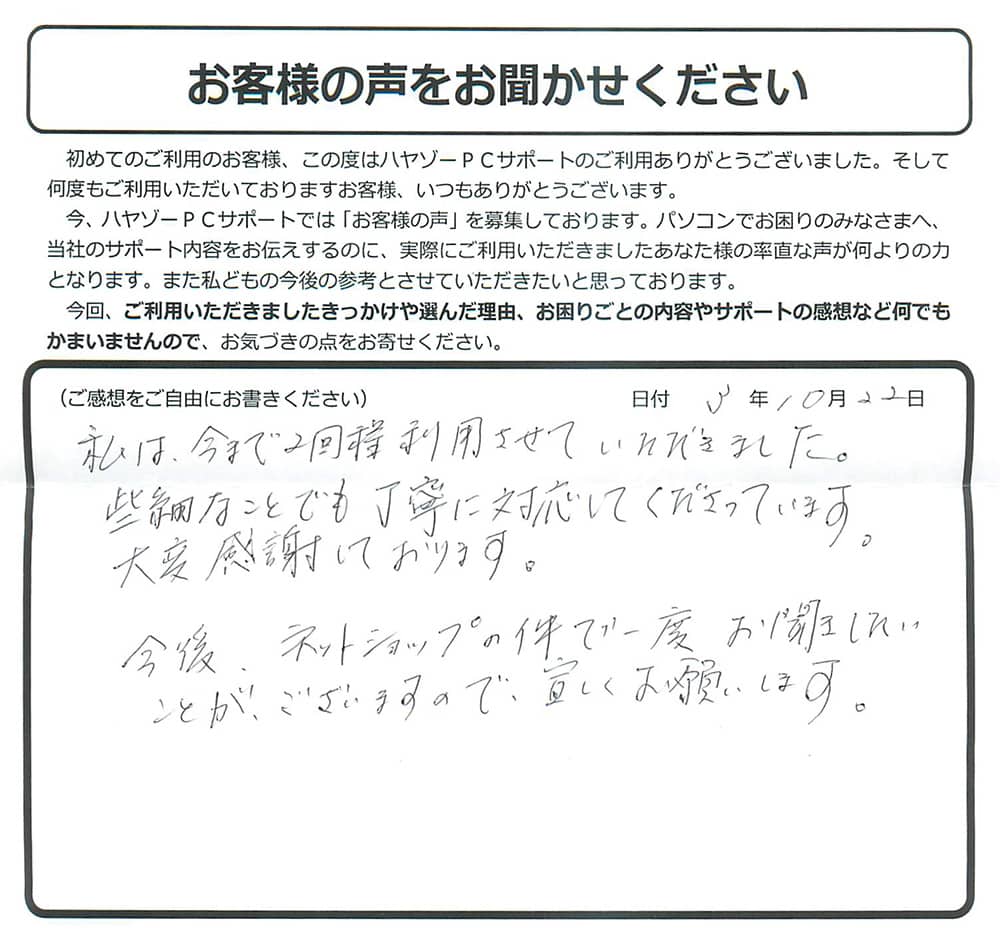 お客様の声をお聞かせください
初めてのご利用のお客様、この度はハヤゾーPCサポートのご利用ありがとうございました。そして
何度もご利用いただいておりますお客様、いつもありがとうございます。
今、ハヤゾーPCサポートでは「お客様の声」を募集しております。パソコンでお困りのみなさまへ、
当社のサポート内容をお伝えするのに、実際にご利用いただきましたあなた様の率直な声が何よりの力
となります。また私どもの今後の参考とさせていただきたいと思っております。
今回、ご利用いただきましたきっかけや選んだ理由、お困りごとの内容やサポートの感想など何でも
かまいませんので、お気づきの点をお寄せください。
（ご感想をご自由にお書きください） 日付 3 年 10 月 22 日
私は、今まで2回程利用させていただきました。
些細なことでも丁寧に対応してくださっています。
大変感謝しております。
今後、ネットショップの件で一度お聞きしたい
ことが、ございますので、宜しくお願いします。